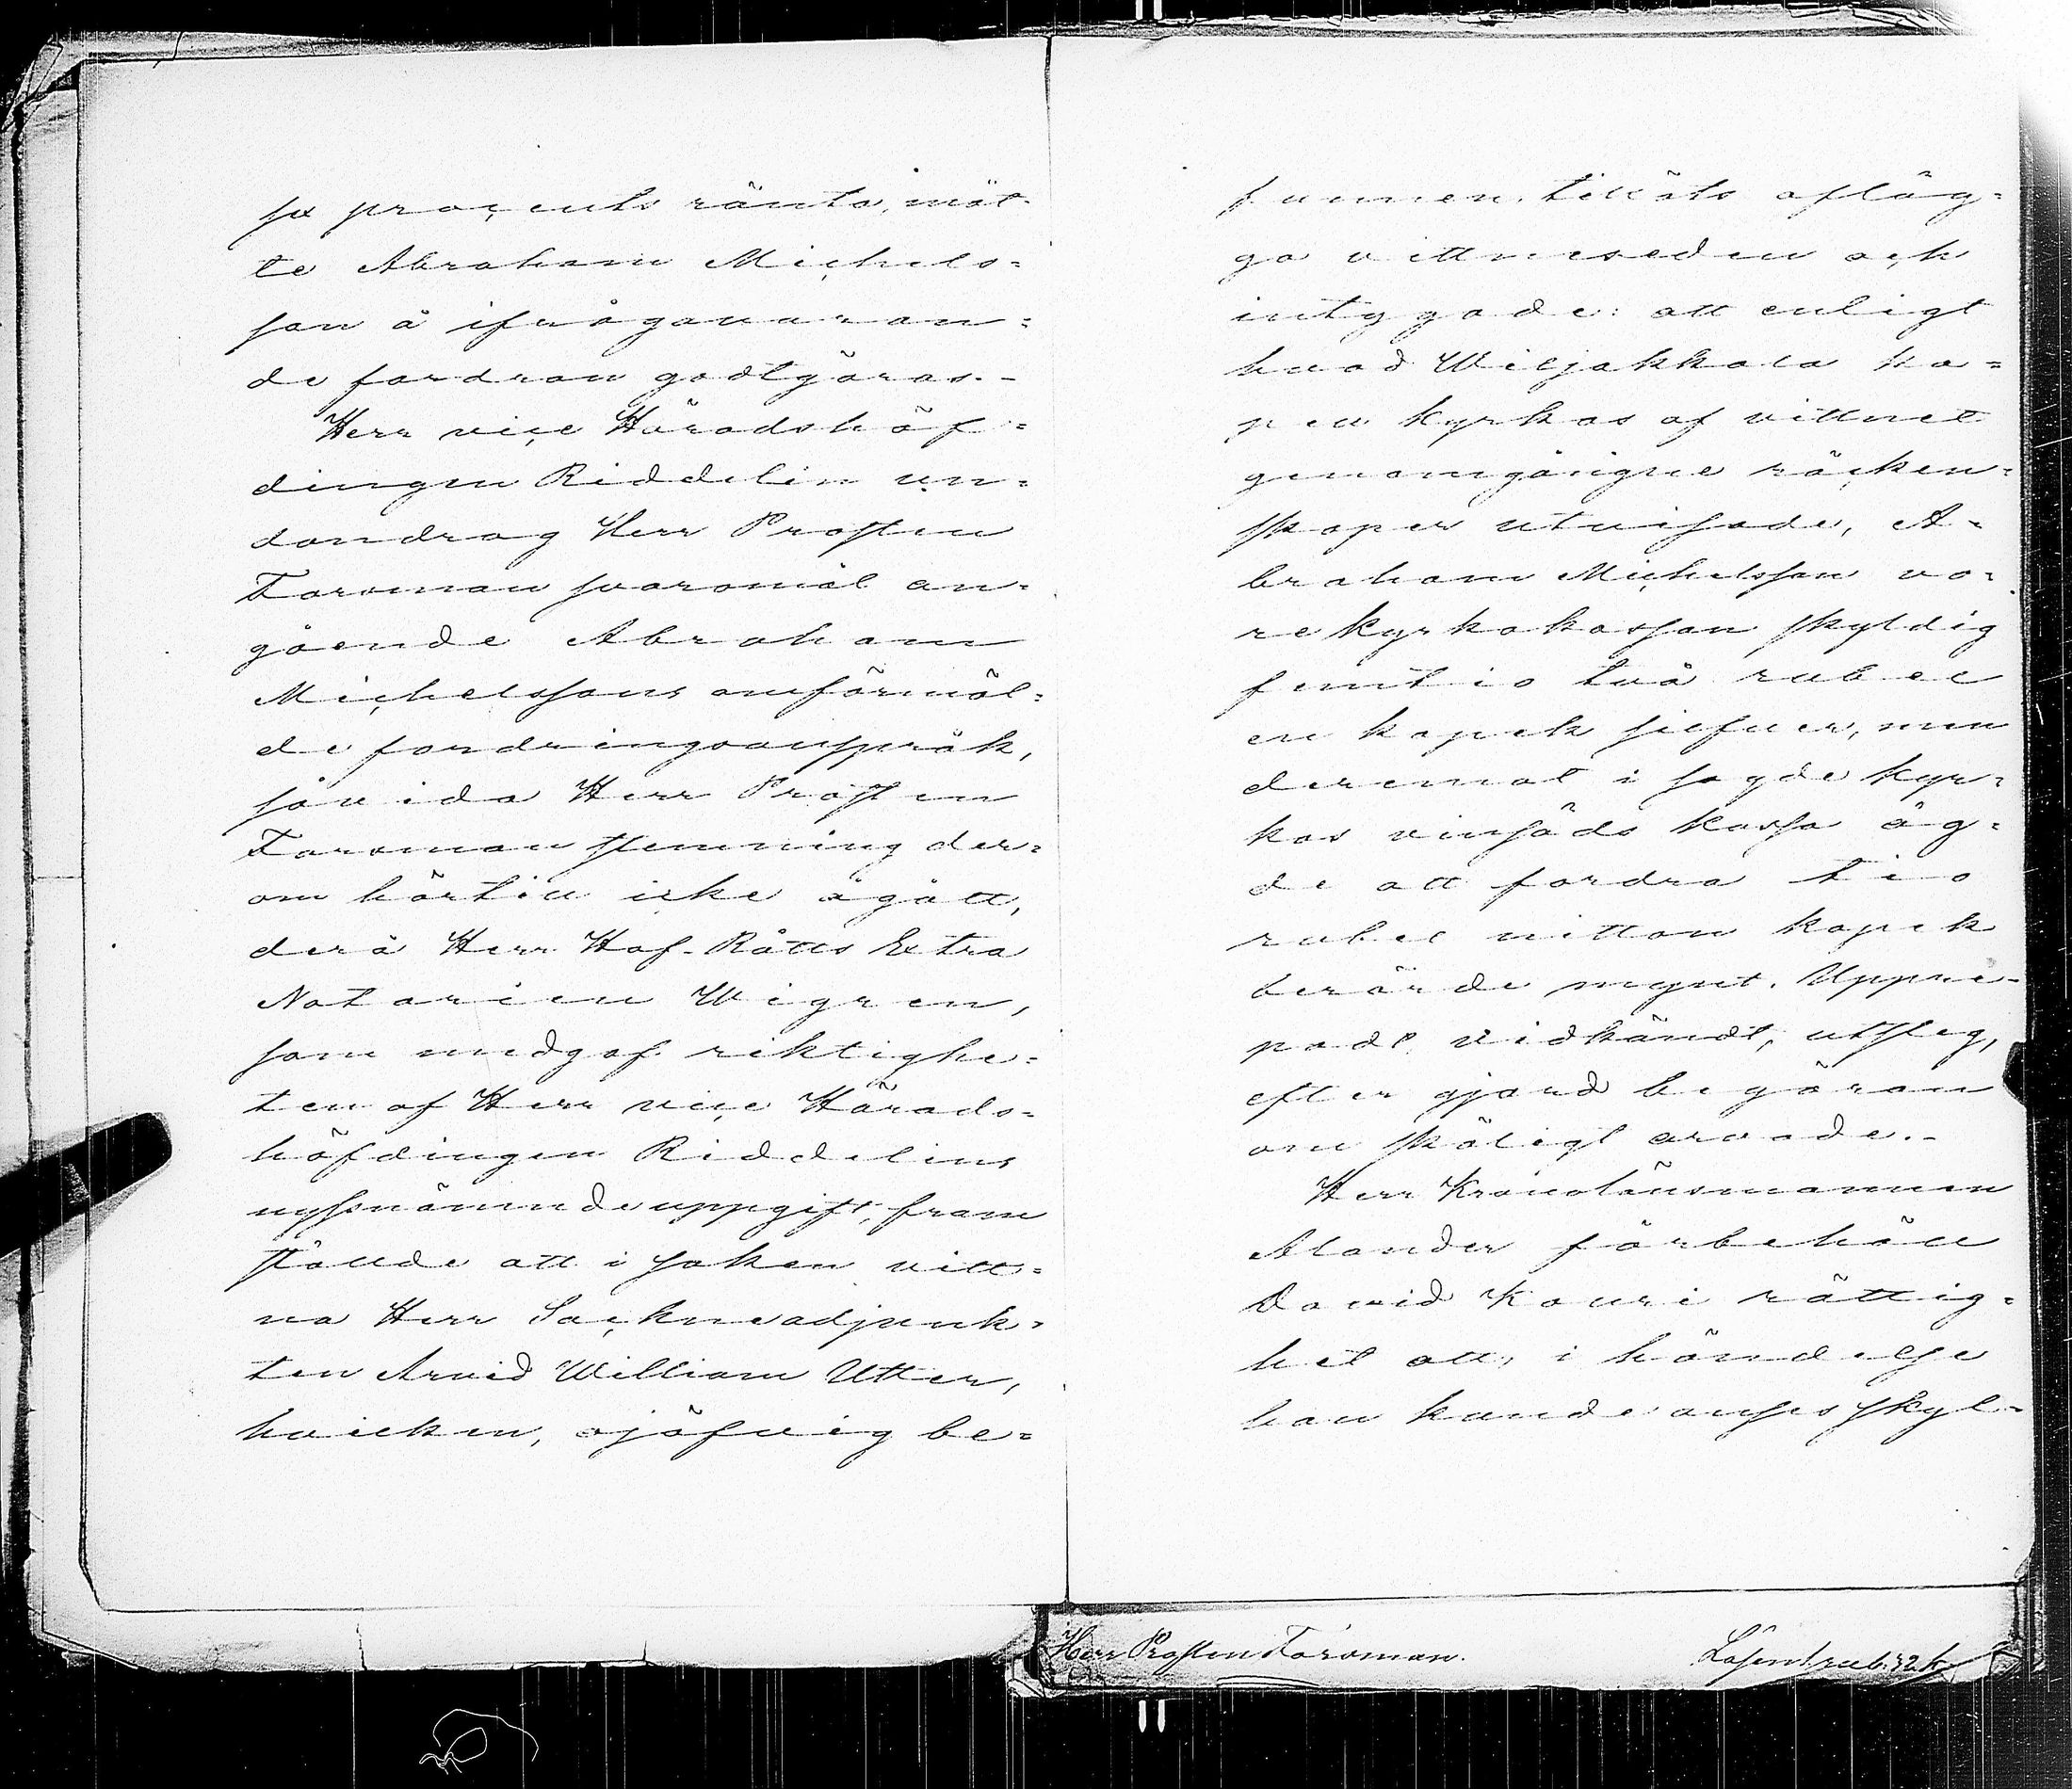 sex procents ränta, måt-
te Abraham Michels-
son å ifrågavaran-
de fordran godtgöras.-
Herr vice Häradshöf-
dingen Riddelin un-
dandrog Herr Prosten
Forsman svaromål an-
gående Abraham
Michelssons omförmäl-
de fordringsanspråk,
såvida Herr Prosten
Forsman stemning der-
om härtill icke ågått,
derå Herr Hof-Rätts Extra
Notarien Wigren,
som medgaf riktighe-
ten af Herr vice Härads-
höfdingen Riddelins
nyssnämnde uppgift, fram
stälde att i saken vitt-
na Herr Sockneadjunk-
ten Arvid William Utter,
hvilken, ojäfvig be-
funnen, tilläts afläg-
ga vittneseden och
intygade: att enligt
hvad Wiljakkala ka-
pell kyrkas af vittnet
genomgångne räken-
skaper utvisade, A-
braham Michelsson vo-
re kyrkokassan skyldig
femtio två rubel
en kopek silfver, men
deremot i sagde kyr-
kas vinsäds kassa äg-
de att fordra tio
rubel nitton kopek
berörde mynt. Uppre-
padt, vidkändt, utsteg,
efter gjord begäran
om skäligt arvode.-
Herr Kronolänsmannen
Alander förbehöll
David Kouri rättig-
het att, i händelse
han kunde anses skyl-
Herr Prosten Forsman.
Lösen 1 rub. 32 k.